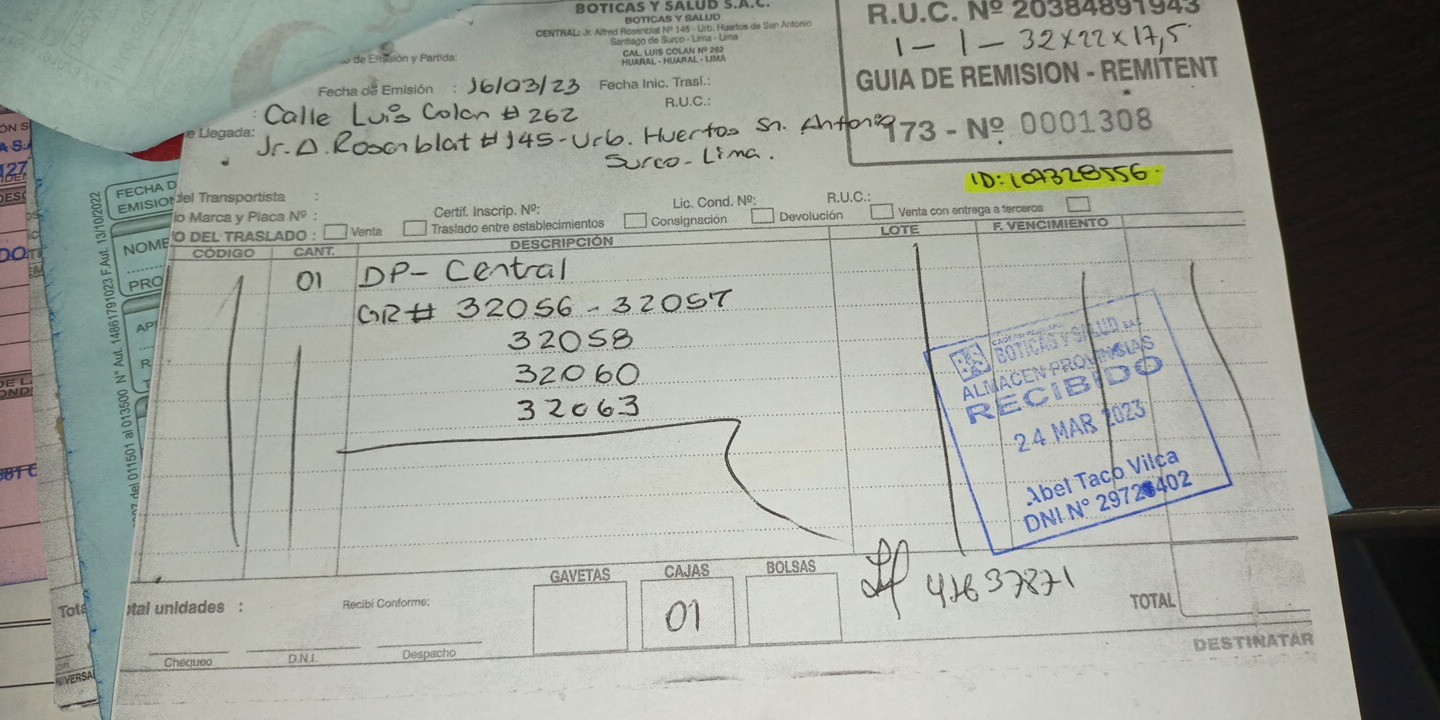 BOTICAS Y SALUD S.A.C.
BOTICAS Y SALUD
CENTRAL: Jr. Alfred Rosenblat Nº 145 - Urb. Huertos de San Antonio
Santiago de Surco - Lima - Lima
CAL. LUIS COLAN Nº 262
HUARAL - HUARAL - LIMA
R.U.C. Nº 20384891943
1 - 1 - 32x22x17,5
GUIA DE REMISION - REMITENT
173 - Nº 0001308
ID: 107328556
o de Emisión y Partida:
Fecha de Emisión : 16/03/23 Fecha Inic. Trasl.:
: Calle Luis Colan # 262 R.U.C.:
e Llegada: Jr. A. Rosenblat # 145 - Urb. Huertos Sn. Antonio
Surco - Lima.
del Transportista :
Certif. Inscrip. Nº: Lic. Cond. Nº: R.U.C.:
io Marca y Placa Nº :
O DEL TRASLADO : Venta Traslado entre establecimientos Consignación Devolución Venta con entrega a terceros
CÓDIGO CANT. DESCRIPCIÓN LOTE F. VENCIMIENTO
01 DP - Central
GR # 32056 - 32057
32058
32060
32063
BOTICAS Y SALUD S.A.C.
ALMACEN PROVINCIAS
RECIBIDO
24 MAR 2023
Abel Taco Vilca
DNI Nº
GAVETAS CAJAS BOLSAS
01
41637871
otal unidades : Recibí Conforme:
TOTAL
Chequeo D.N.I. Despacho
DESTINATAR
FECHA D
EMISION
NOME
PRO
AP
R
Nº Aut. 14861791023 F.Aut. 13/10/2022
del 011501 al 013500
Tota